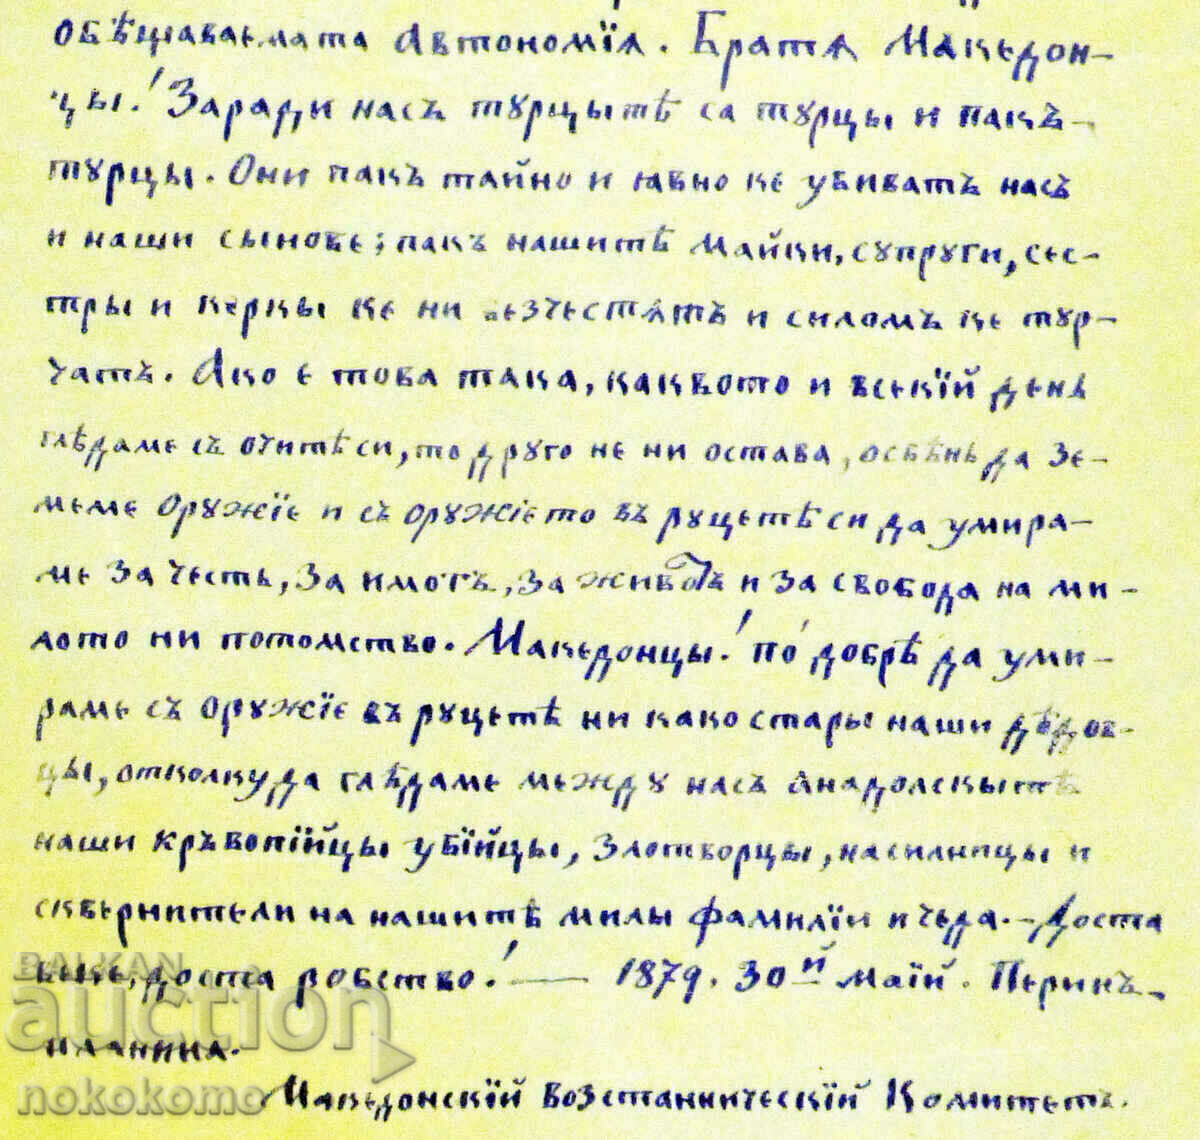 обѣщаваемата Автономїя. Братя Македон-
цы! Заради насъ турцытѣ са турцы и пакъ-
турцы. Они пакъ тайно и явно ке убиватъ насъ
и наши сынове; пакъ нашитѣ майки, супруги, сес-
тры и керкы ке ни безчестятъ и силомъ ке тур-
чатъ. Ако е това така, каквото и всекїй день
глѣдаме съ очитѣ си, то друго не ни остава, освѣнь да зе-
меме оружїе и съ оружїето въ руцетѣ си да умира-
ме за честь, за имотъ, за животъ и за свобода на ми-
лото ни потомство. Македонцы! по добрѣ да уми-
раме съ оружїе въ руцетѣ ни како стары наши дѣдов-
цы, отколку да глѣдаме между насъ Анадолскытѣ
наши кръвопїйцы убїйцы, злотворцы, насилницы и
сквернители на нашитѣ милы фамилїи и чеда. - Доста
веке, доста робство! — 1879. 30й Маїй. Перинъ-
планина.
Македонскїй Возстанническїй Комитетъ.
BALKAN
auction
nokokomo